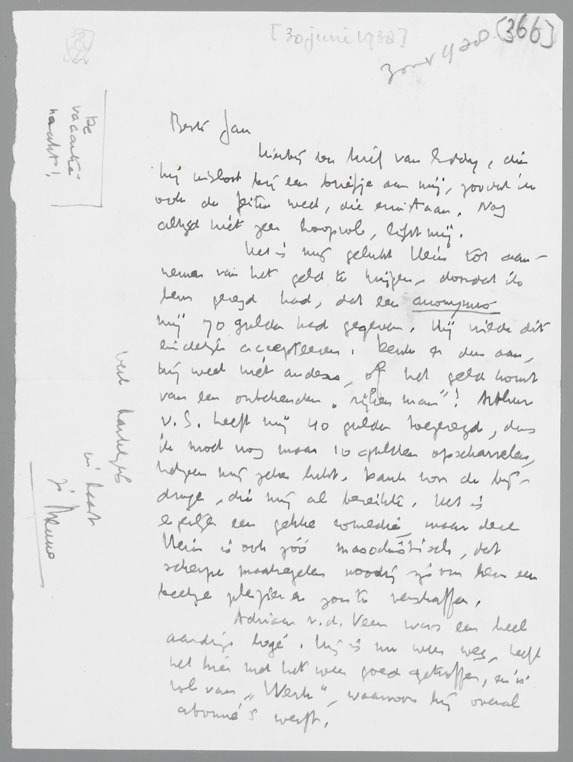 [30 juni 1938]
[366]
Beste Jan
Hierbij een brief van Eddy, die
hij insloot bij een briefje aan mij, zoodat ik
ook de feiten weet, die erin staan. Nog
altijd niet zeer hoopvol, lijkt mij.
Het is mij gelukt Hein tot aan-
nemen van het geld te krijgen, doordat ik
hem gezegd had, dat een anonymus
mij 70 gulden had gegeven. Hij wilde dit
eindelijk accepteeren. Denk er dus aan,
hij weet niet anders, of het geld komt
van een onbekenden "rijken man"! Arthur
v. S. heeft mij 40 gulden toegezegd, dus
ik moet nog maar 10 gulden opscharrelen,
hetgeen mij zeker lukt. Dank voor de bij-
drage, die mij al bereikte. Het is
eigenlijk een gekke comedie, maar deze
Hein is ook zóó masochistisch, dat
scherpe maatregelen noodig zijn om hem een
beetje plezier te verschaffen.
Adriaan v.d. Veen was een heel
aardige logé. Hij is nu weer weg, heeft
het hier met het weer goed getroffen, en is
vol van "Werk", waarvoor hij overal
abonné's werft.
veel hartelijks
in haast
je Menno
De
vacantie
nacht!